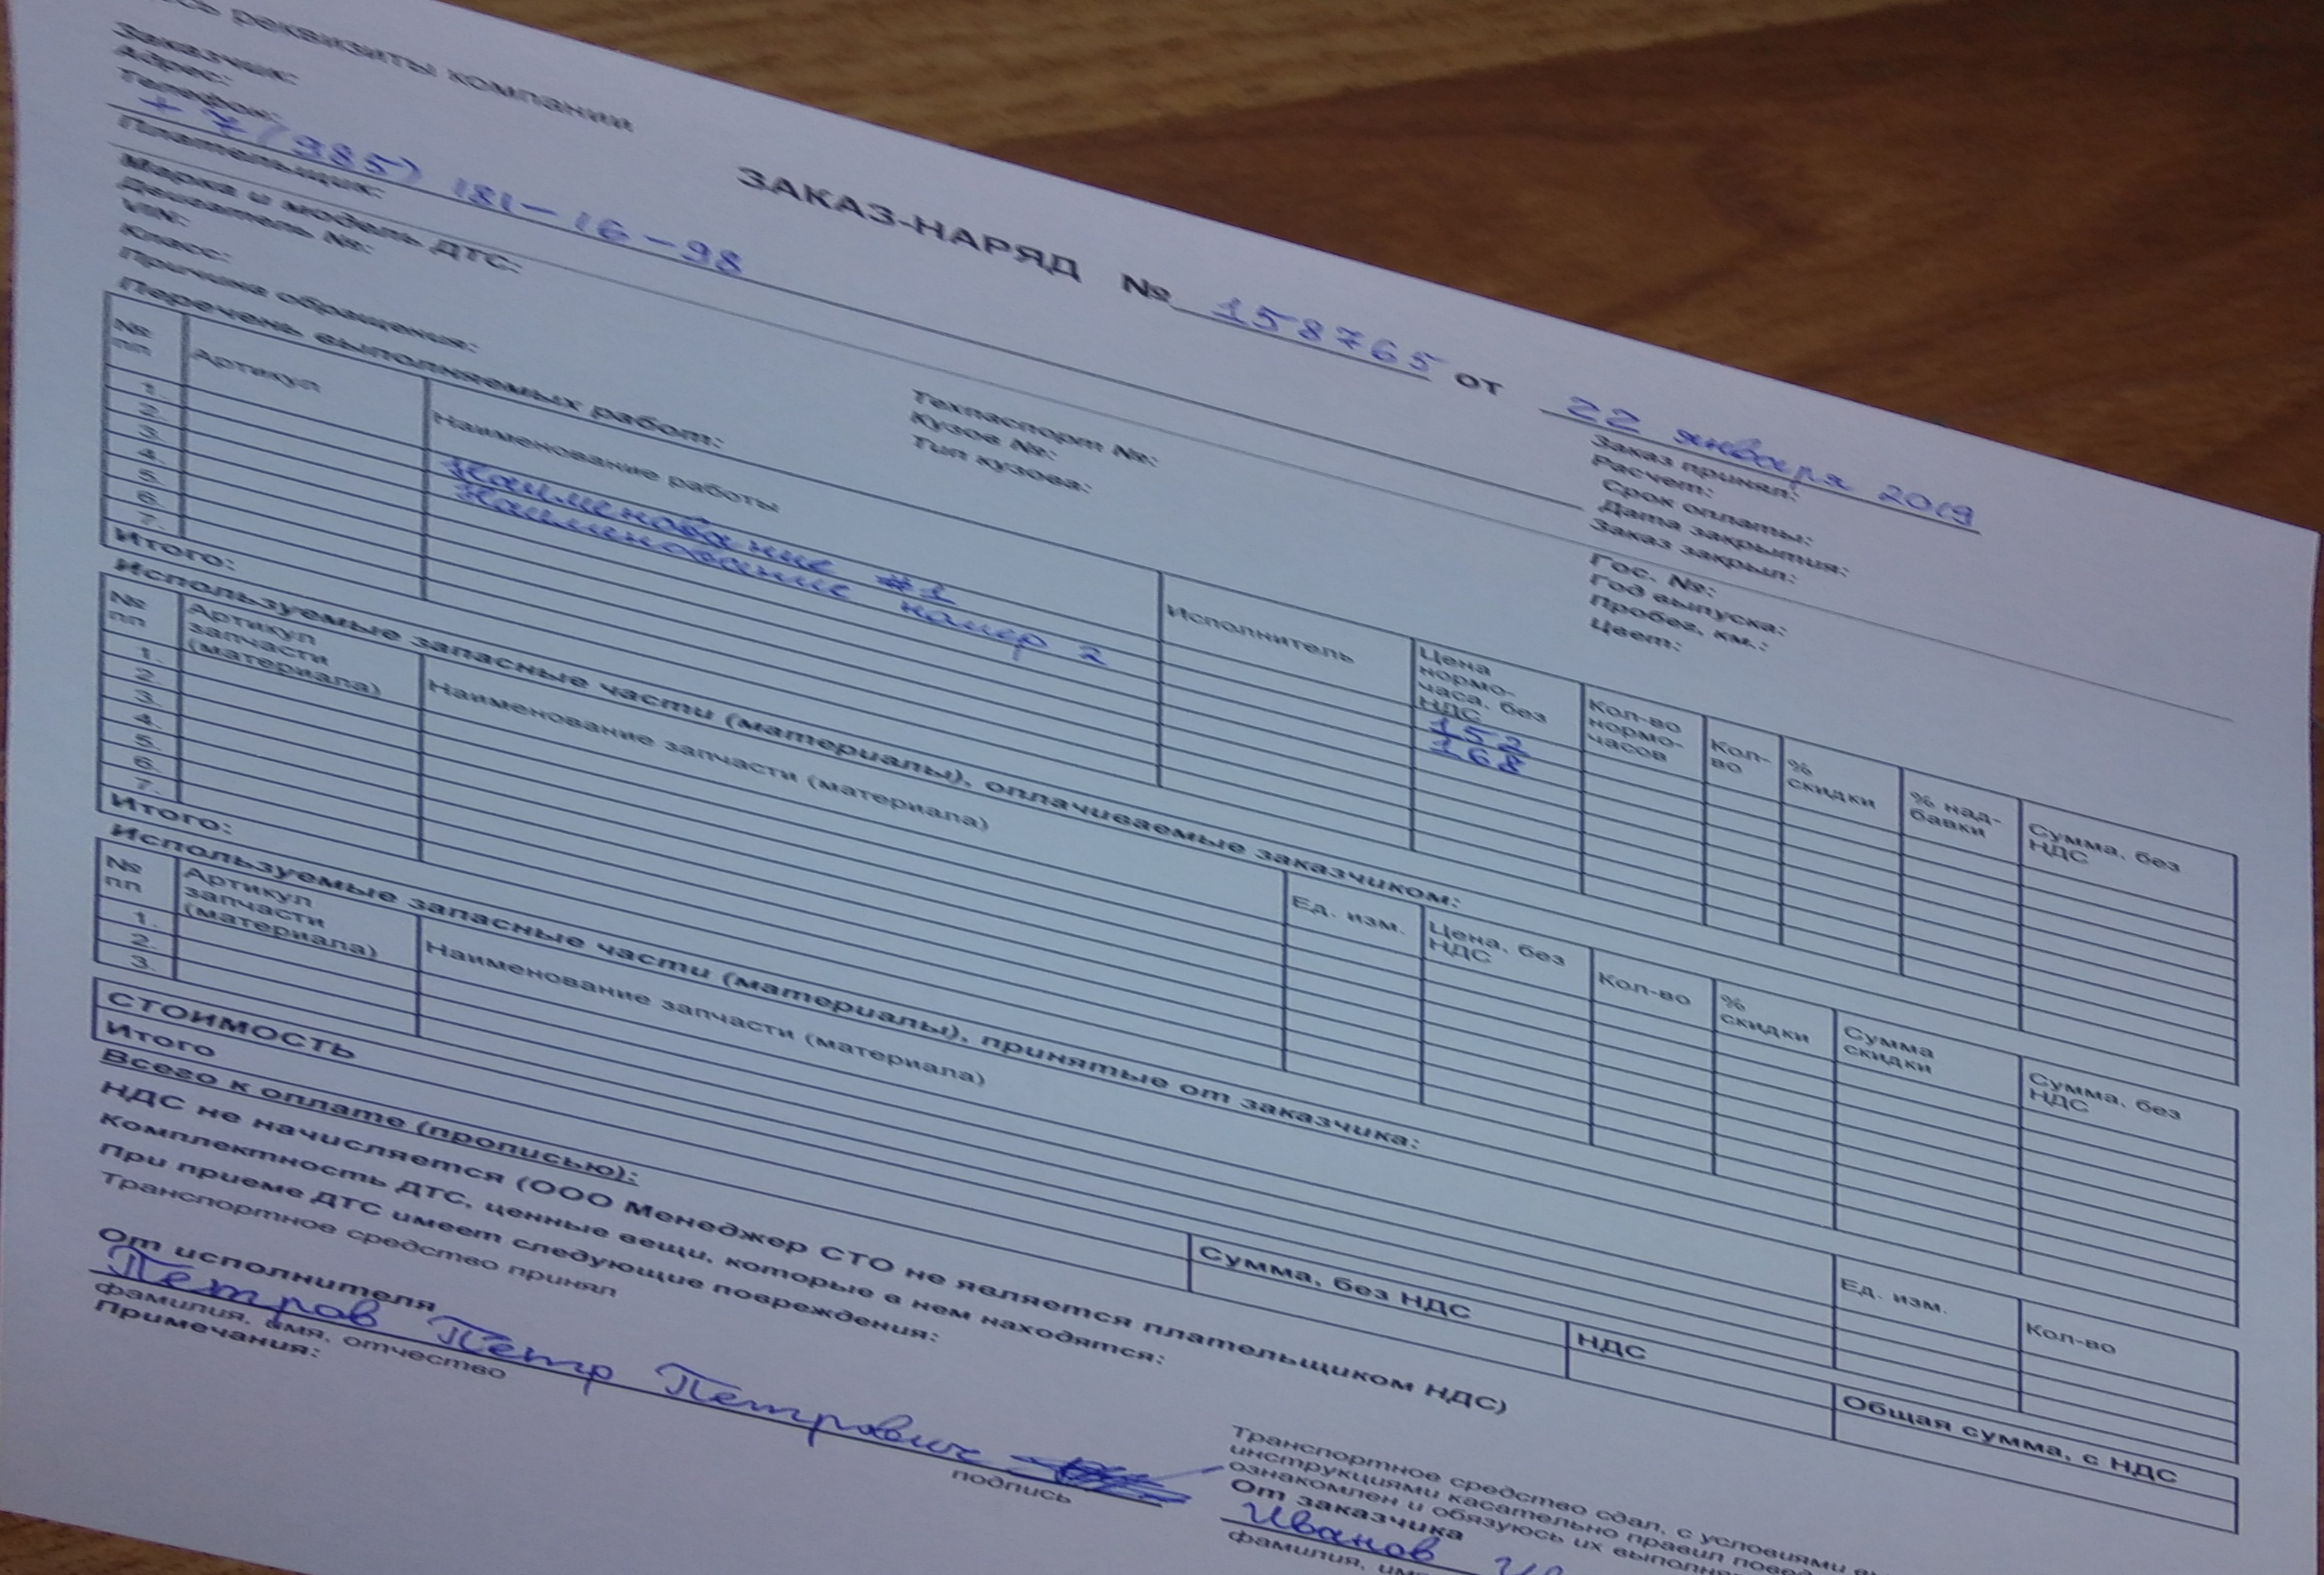 реквизиты компании
ЗАКАЗ-НАРЯД № 158765 от 22 января 2019
Заказчик:
Адрес:
Телефон:
+7(985) 181-16-98
Плательщик:
Заказ принял:
Расчет:
Срок оплаты:
Дата закрытия:
Заказ закрыл:
Марка и модель ДТС:
Двигатель №:
VIN:
Класс:
Причина обращения:
Техпаспорт №:
Кузов №:
Тип кузова:
Гос. №:
Год выпуска:
Пробег, км.:
Цвет:
Перечень выполняемых работ:
№ пп Артикул Наименование работы Исполнитель Цена нормо-часа, без НДС Кол-во нормо-часов Кол-во % скидки % над-бавки Сумма, без НДС
1. Наименование #1 152
2. Наименование номер 2 168
3.
4.
5.
6.
7.
Итого:
Используемые запасные части (материалы), оплачиваемые заказчиком:
№ пп Артикул запчасти (материала) Наименование запчасти (материала) Ед. изм. Цена, без НДС Кол-во % скидки Сумма скидки Сумма, без НДС
1.
2.
3.
4.
5.
6.
7.
Итого:
Используемые запасные части (материалы), принятые от заказчика:
№ пп Артикул запчасти (материала) Наименование запчасти (материала) Ед. изм. Кол-во
1.
2.
3.
СТОИМОСТЬ Сумма, без НДС НДС Общая сумма, с НДС
Итого
Всего к оплате (прописью):
НДС не начисляется (ООО Менеджер СТО не является плательщиком НДС)
Комплектность ДТС, ценные вещи, которые в нем находятся:
При приеме ДТС имеет следующие повреждения:
Транспортное средство принял
От исполнителя
Петров Пётр Петрович
фамилия, имя, отчество подпись
Примечания:
Транспортное средство сдал, с условиями
инструкциями касательно правил
ознакомлен и обязуюсь их
От заказчика
Иванов
фамилия,